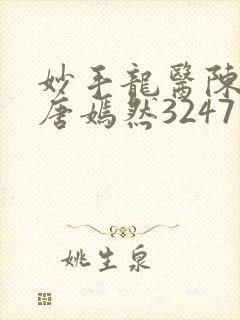 妙手龍醫陳
唐嫣然3247
姚生泉